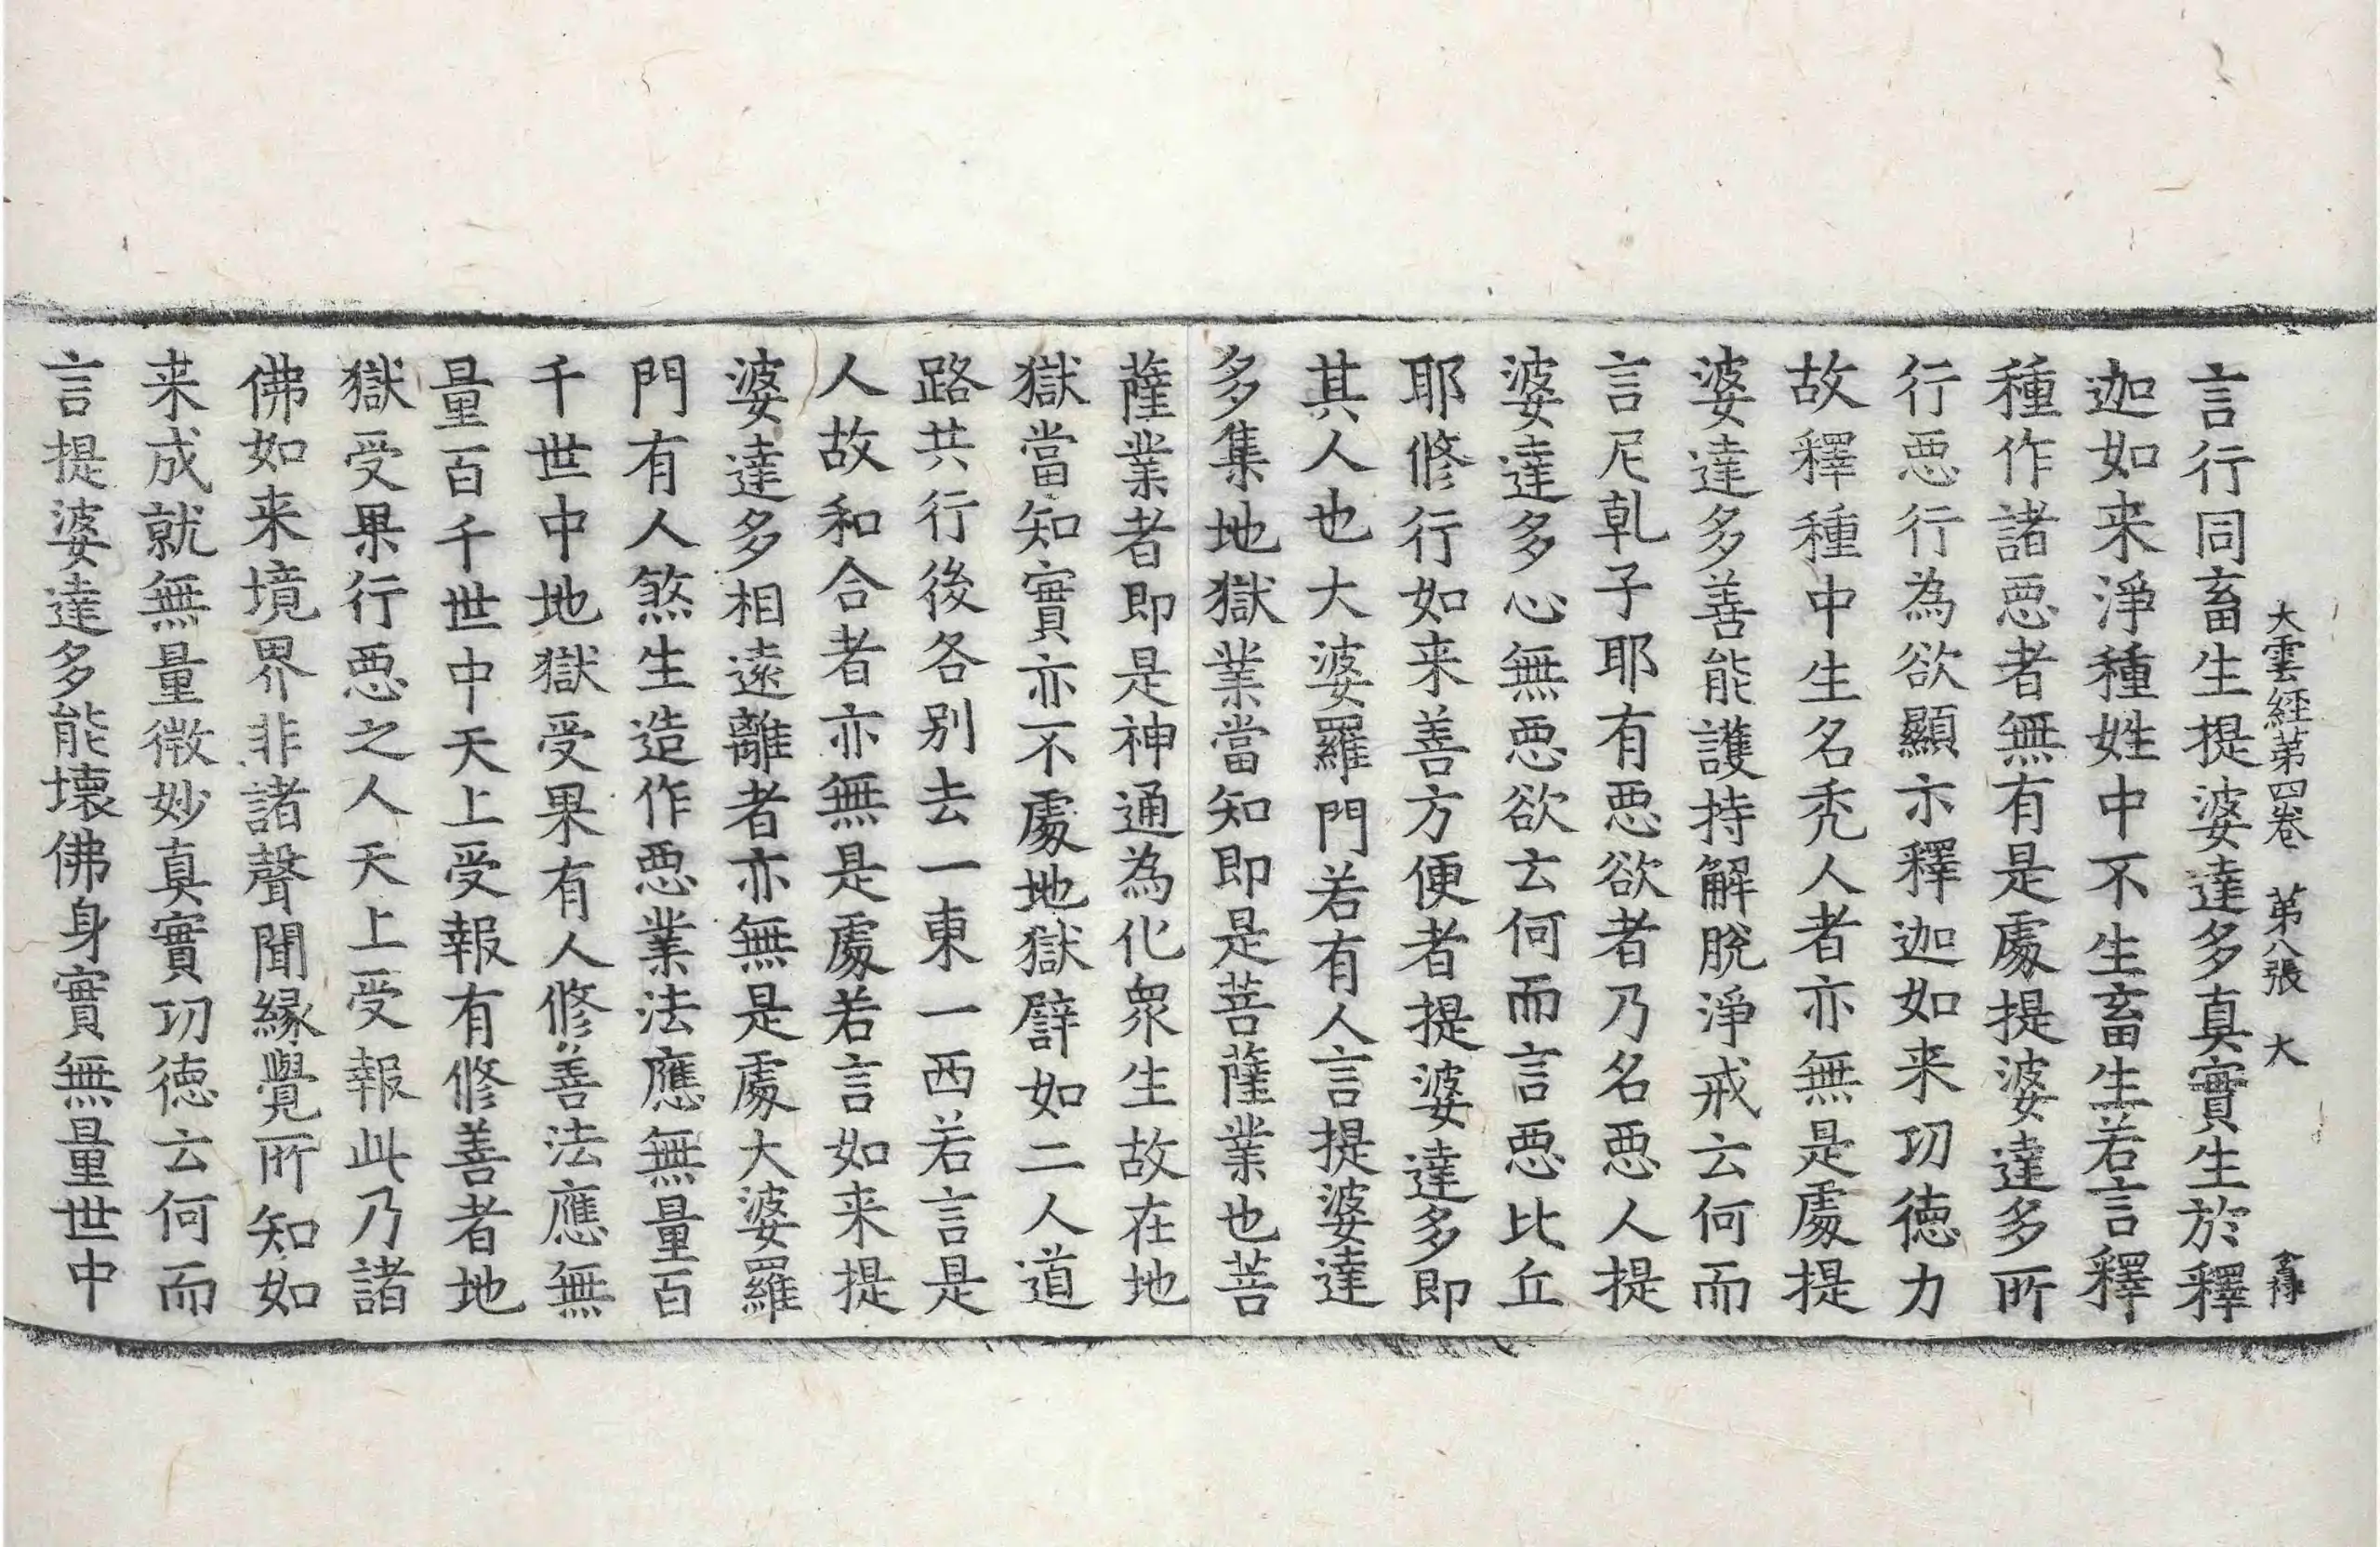 大雲經第四卷 第八張 大
言行同畜生提婆達多真實生於釋
迦如来淨種姓中不生畜生若言釋
種作諸惡者無有是處提婆達多所
行惡行為欲顯示釋迦如来功德力
故釋種中生名禿人者亦無是處提
婆達多善能護持解脫淨戒云何而
言尼乹子耶有惡欲者乃名惡人提
婆達多心無惡欲云何而言惡比丘
耶修行如来善方便者提婆達多即
其人也大婆羅門若有人言提婆達
多集地獄業當知即是菩薩業也菩
薩業者即是神通為化衆生故在地
獄當知實亦不處地獄譬如二人道
路共行後各別去一東一西若言是
人故和合者亦無是處若言如来提
婆達多相遠離者亦無是處大婆羅
門有人煞生造作惡業法應無量百
千世中地獄受果有人修善法應無
量百千世中天上受報有修善者地
獄受果行惡之人天上受報此乃諸
佛如来境界非諸聲聞緣覺所知如
来成就無量微妙真實功德云何而
言提婆達多能壞佛身實無量世中